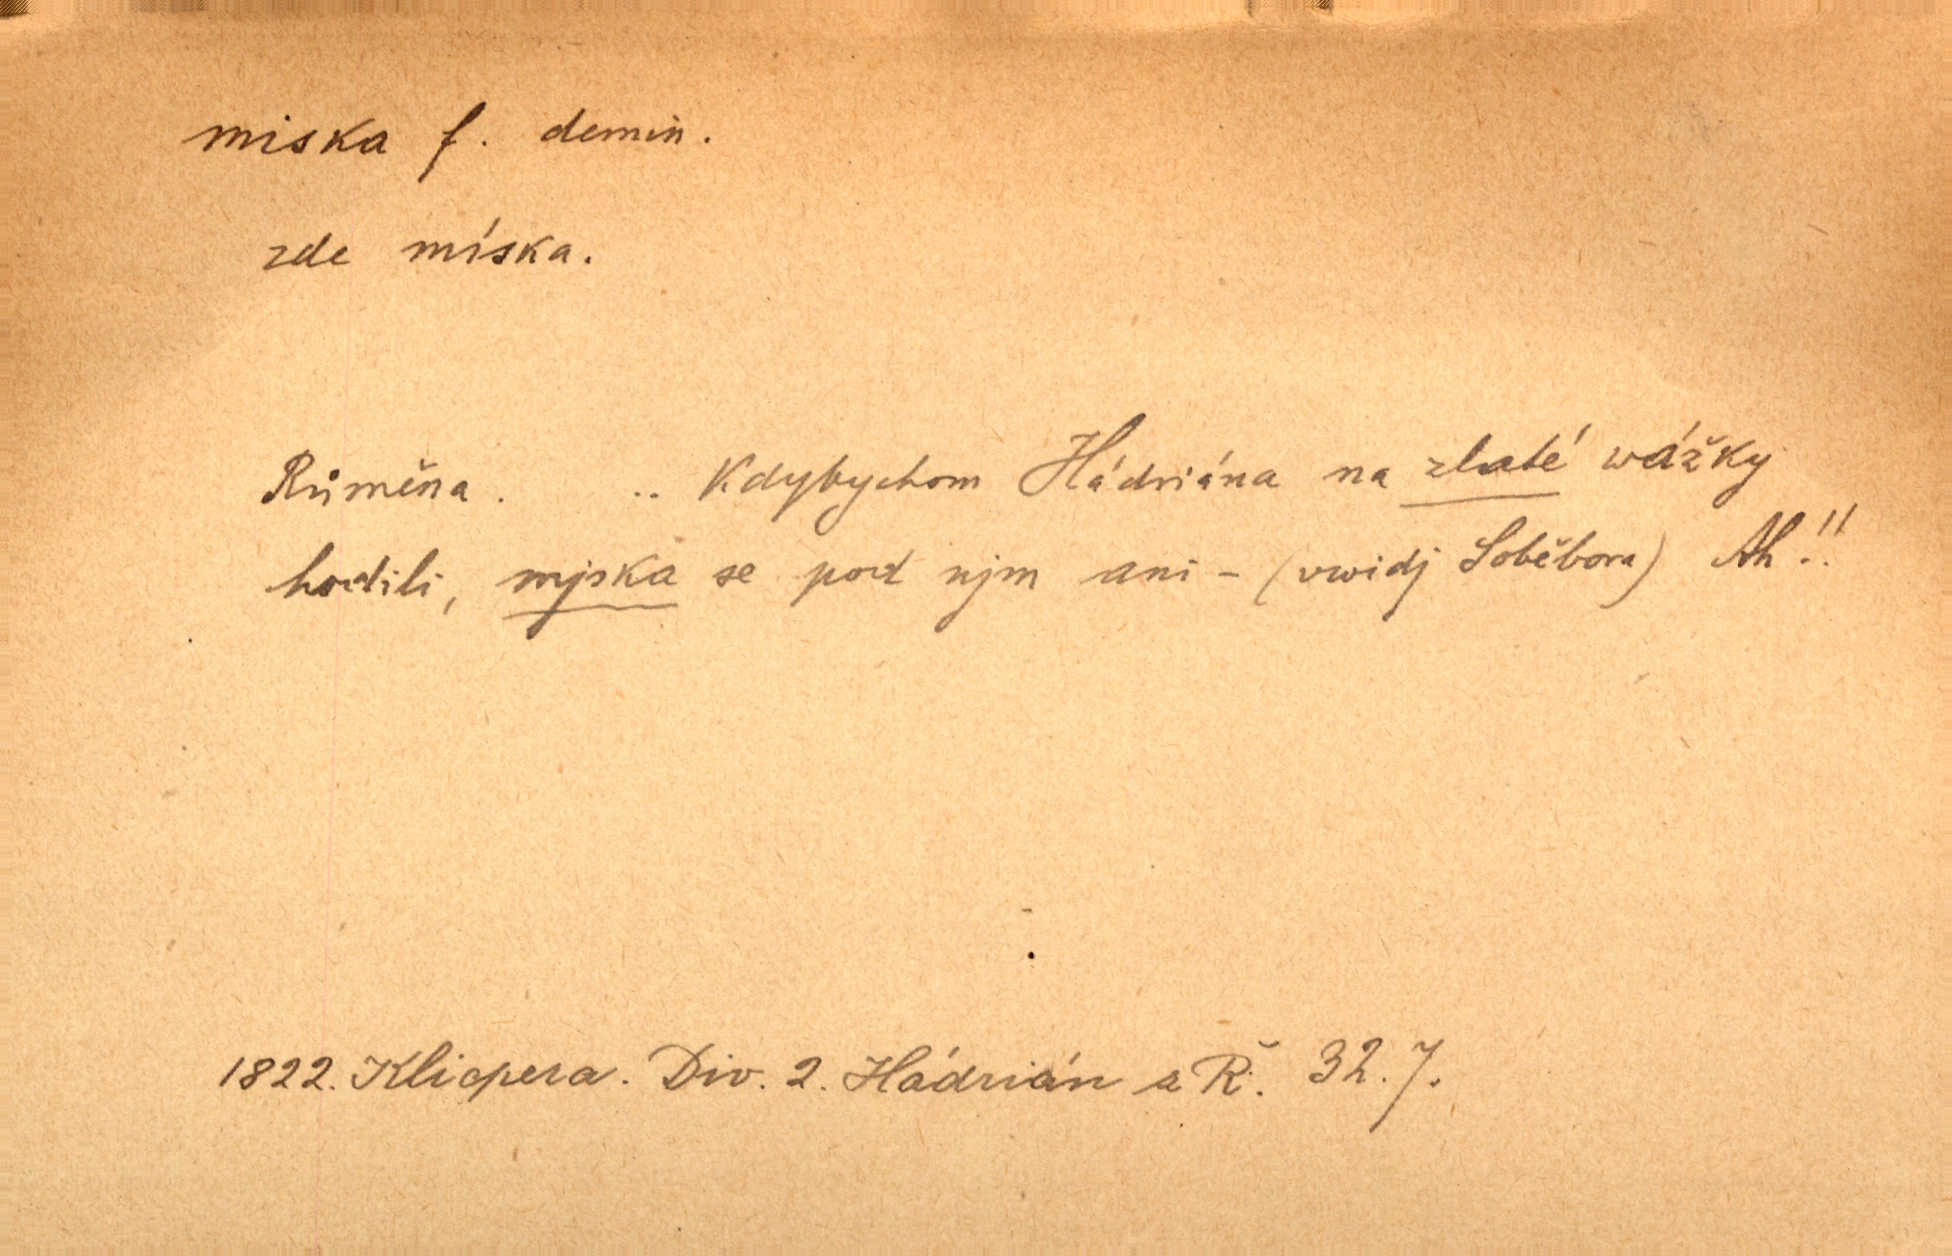 miska f. demin.
zde míska.
Růměna. .. Kdybychom Hádriána na zlaté wážky
hodili, mjska se pod njm ani – (vwidj Soběbora) Ah!!
1822. Klicpera. Div. 2. Hádrián a Ř. 32.7.